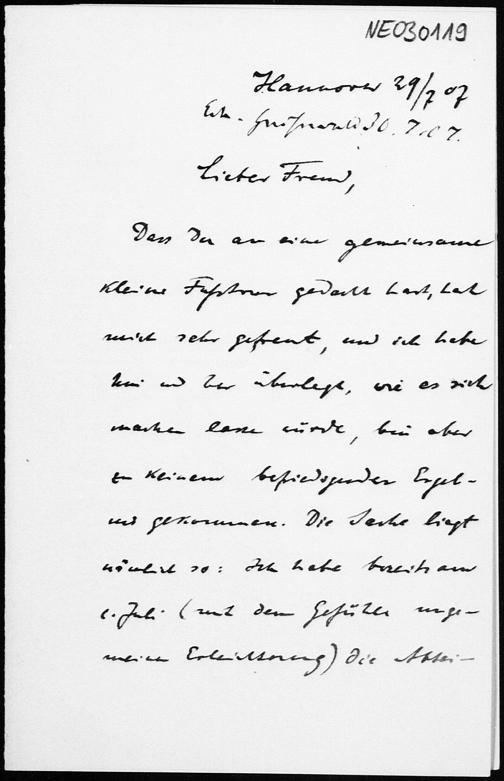 NE030119
Hannover 29/7 07
Erh. Greifswald 30. 7. 07.
Lieber Freund,
Dass Du an eine gemeinsame
kleine Fusstour gedacht hast, hat
mich sehr gefreut, und ich habe
hin und her überlegt, wie es sich
machen lasse würde, bin aber
zu keinem befriedigenden Ergeb-
nis gekommen. Die Sache liegt
nämlich so: Ich habe bereits am
1. Juli (mit dem Gefühle unge-
meiner Erleichterung) die Abtei-